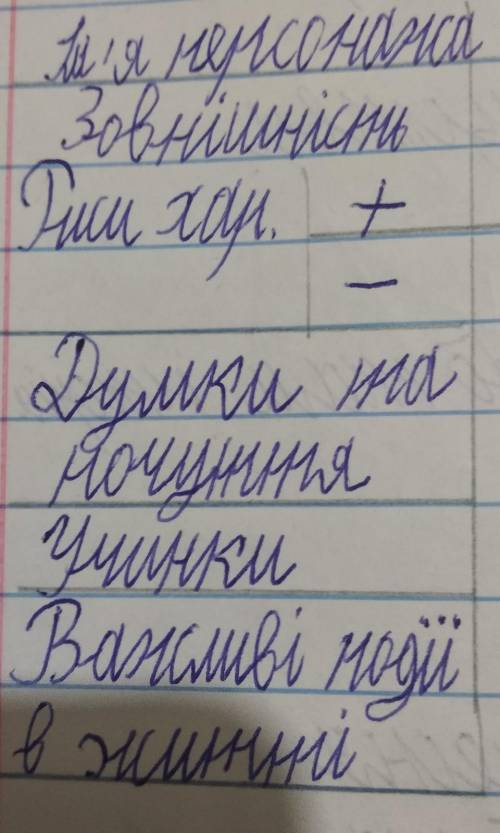 Ім'я персонажа
Зовнішність
Риси хар. +
–
Думки та
почуття
Учинки
Важливі події
в житті